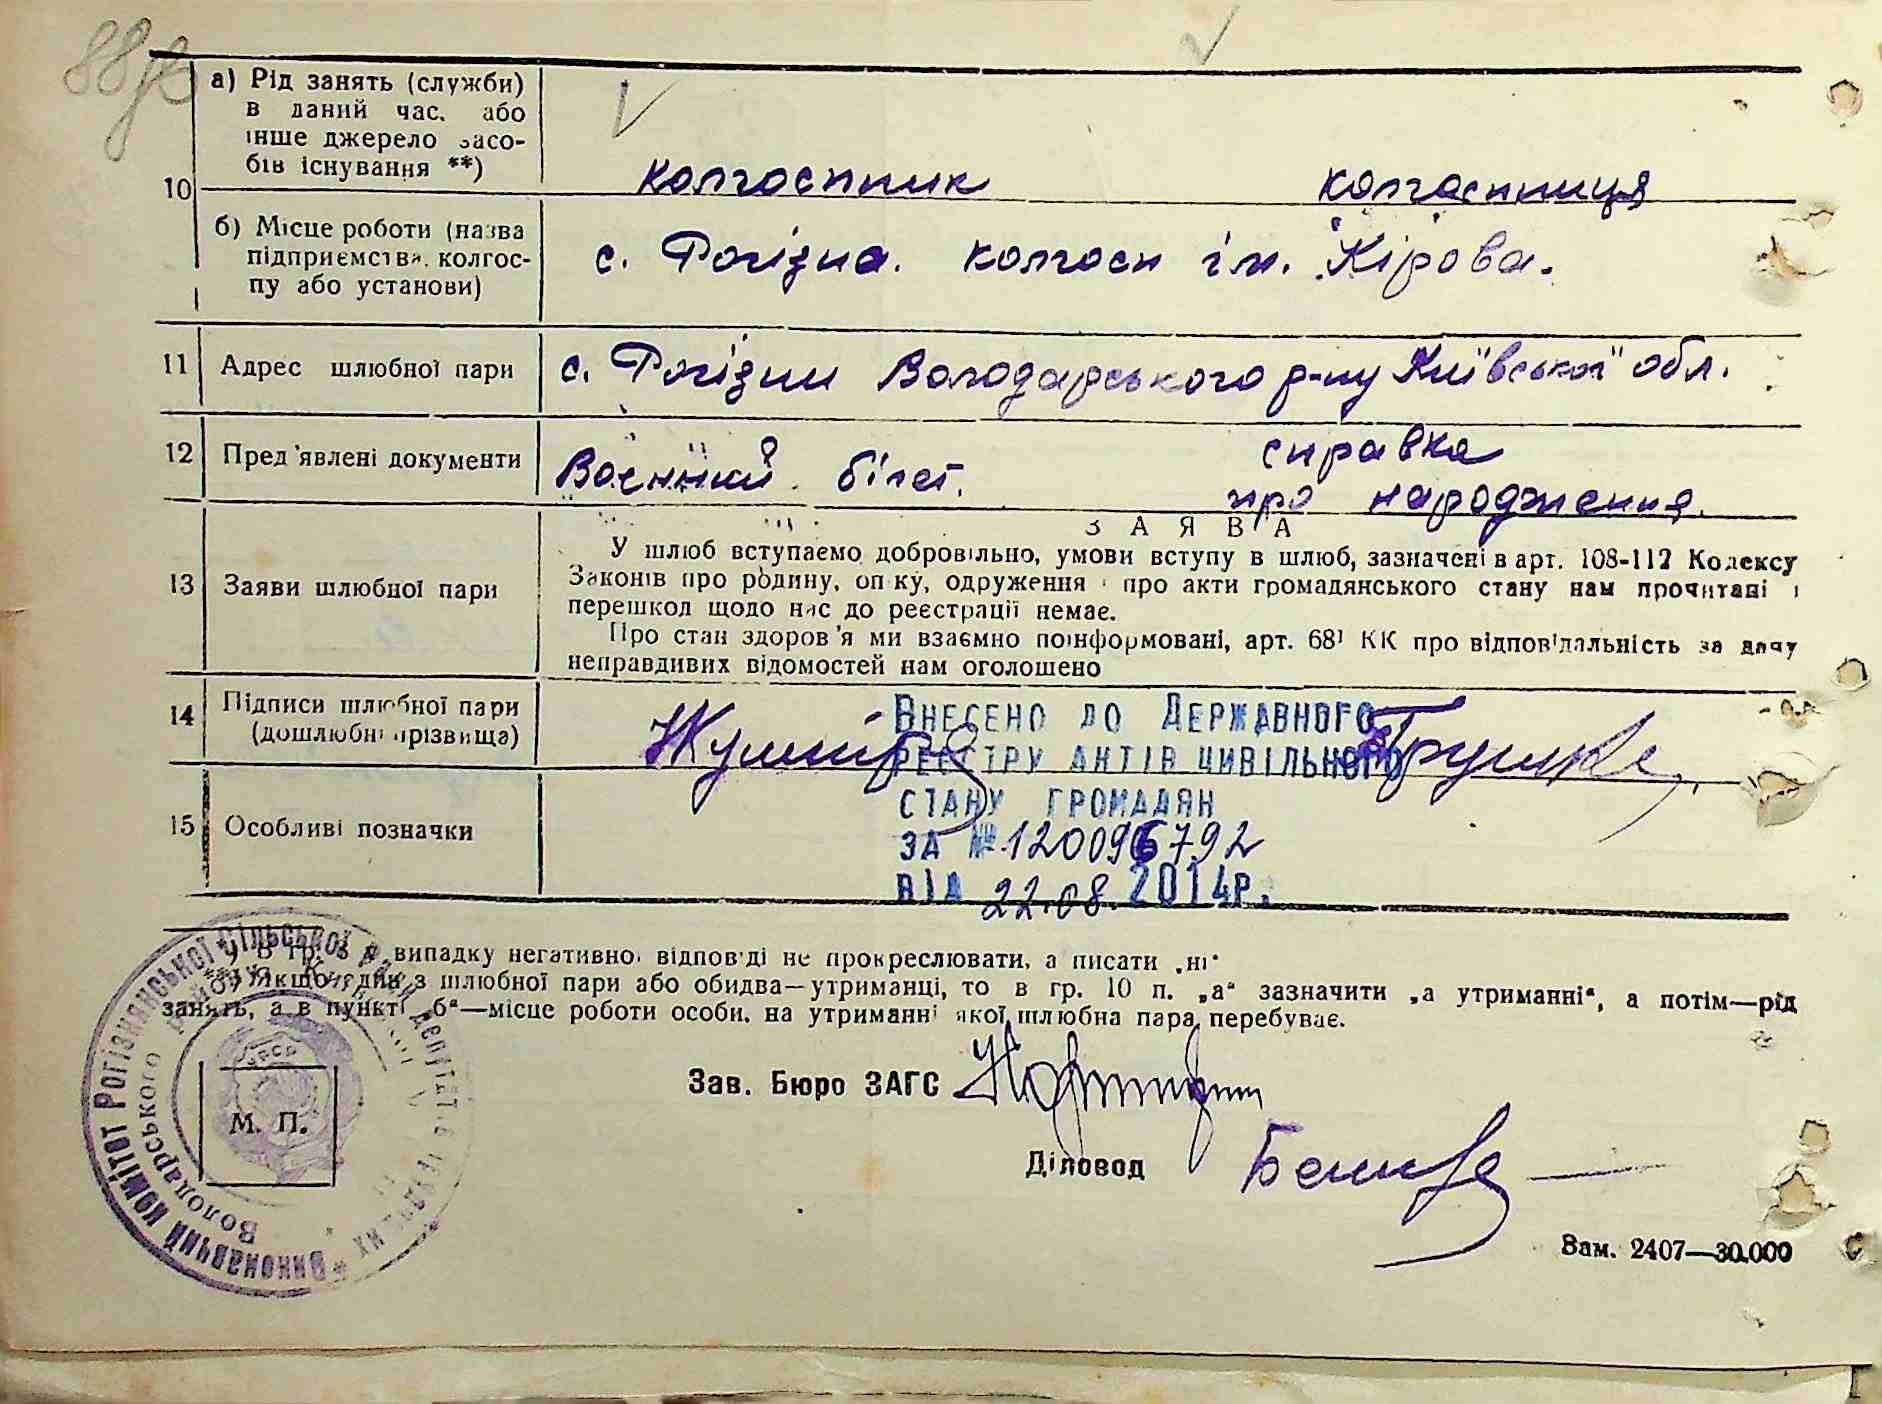 88
10
а) Рід занять (служби)
в даний час, або
інше джерело засо-
бів існування **)
колгоспник колгоспниця
б) Місце роботи (назва
підприємства, колгос-
пу або установи)
с. Рогізна. колгосп ім. Кірова.
11 Адрес шлюбної пари с. Рогізни Володарського р-ну Київської обл.
12 Пред'явлені документи Воєнний білет. справка
про народження.
13 Заяви шлюбної пари
ЗАЯВА
У шлюб вступаємо добровільно, умови вступу в шлюб, зазначені в арт. 108-112 Кодексу
Законів про родину, опіку, одруження і про акти громадянського стану нам прочитані і
перешкод щодо нас до реєстрації немає.
Про стан здоров'я ми взаємно поінформовані, арт. 68¹ КК про відповідальність за дачу
неправдивих відомостей нам оголошено
14 Підписи шлюбної пари
(дошлюбні прізвища)
ВНЕСЕНО ДО ДЕРЖАВНОГО
РЕЄСТРУ АКТІВ ЦИВІЛЬНОГО
СТАНУ ГРОМАДЯН
ЗА № 120096792
ВІД 22.08.2014Р.
15 Особливі позначки
*) В гр. 3 у випадку негативної відповіді не прокреслювати, а писати „ні"
**) Якщо один з шлюбної пари або обидва—утриманці, то в гр. 10 п. „а" зазначити „а утриманні", а потім—рід
занять, а в пункті „б"—місце роботи особи, на утриманні якої шлюбна пара перебуває.
Зав. Бюро ЗАГС
Діловод
М. П.
Виконавчий комітет Рогізнянської сільської Ради депутатів трудящих
Володарського району Київської
УРСР
Зам. 2407—30.000